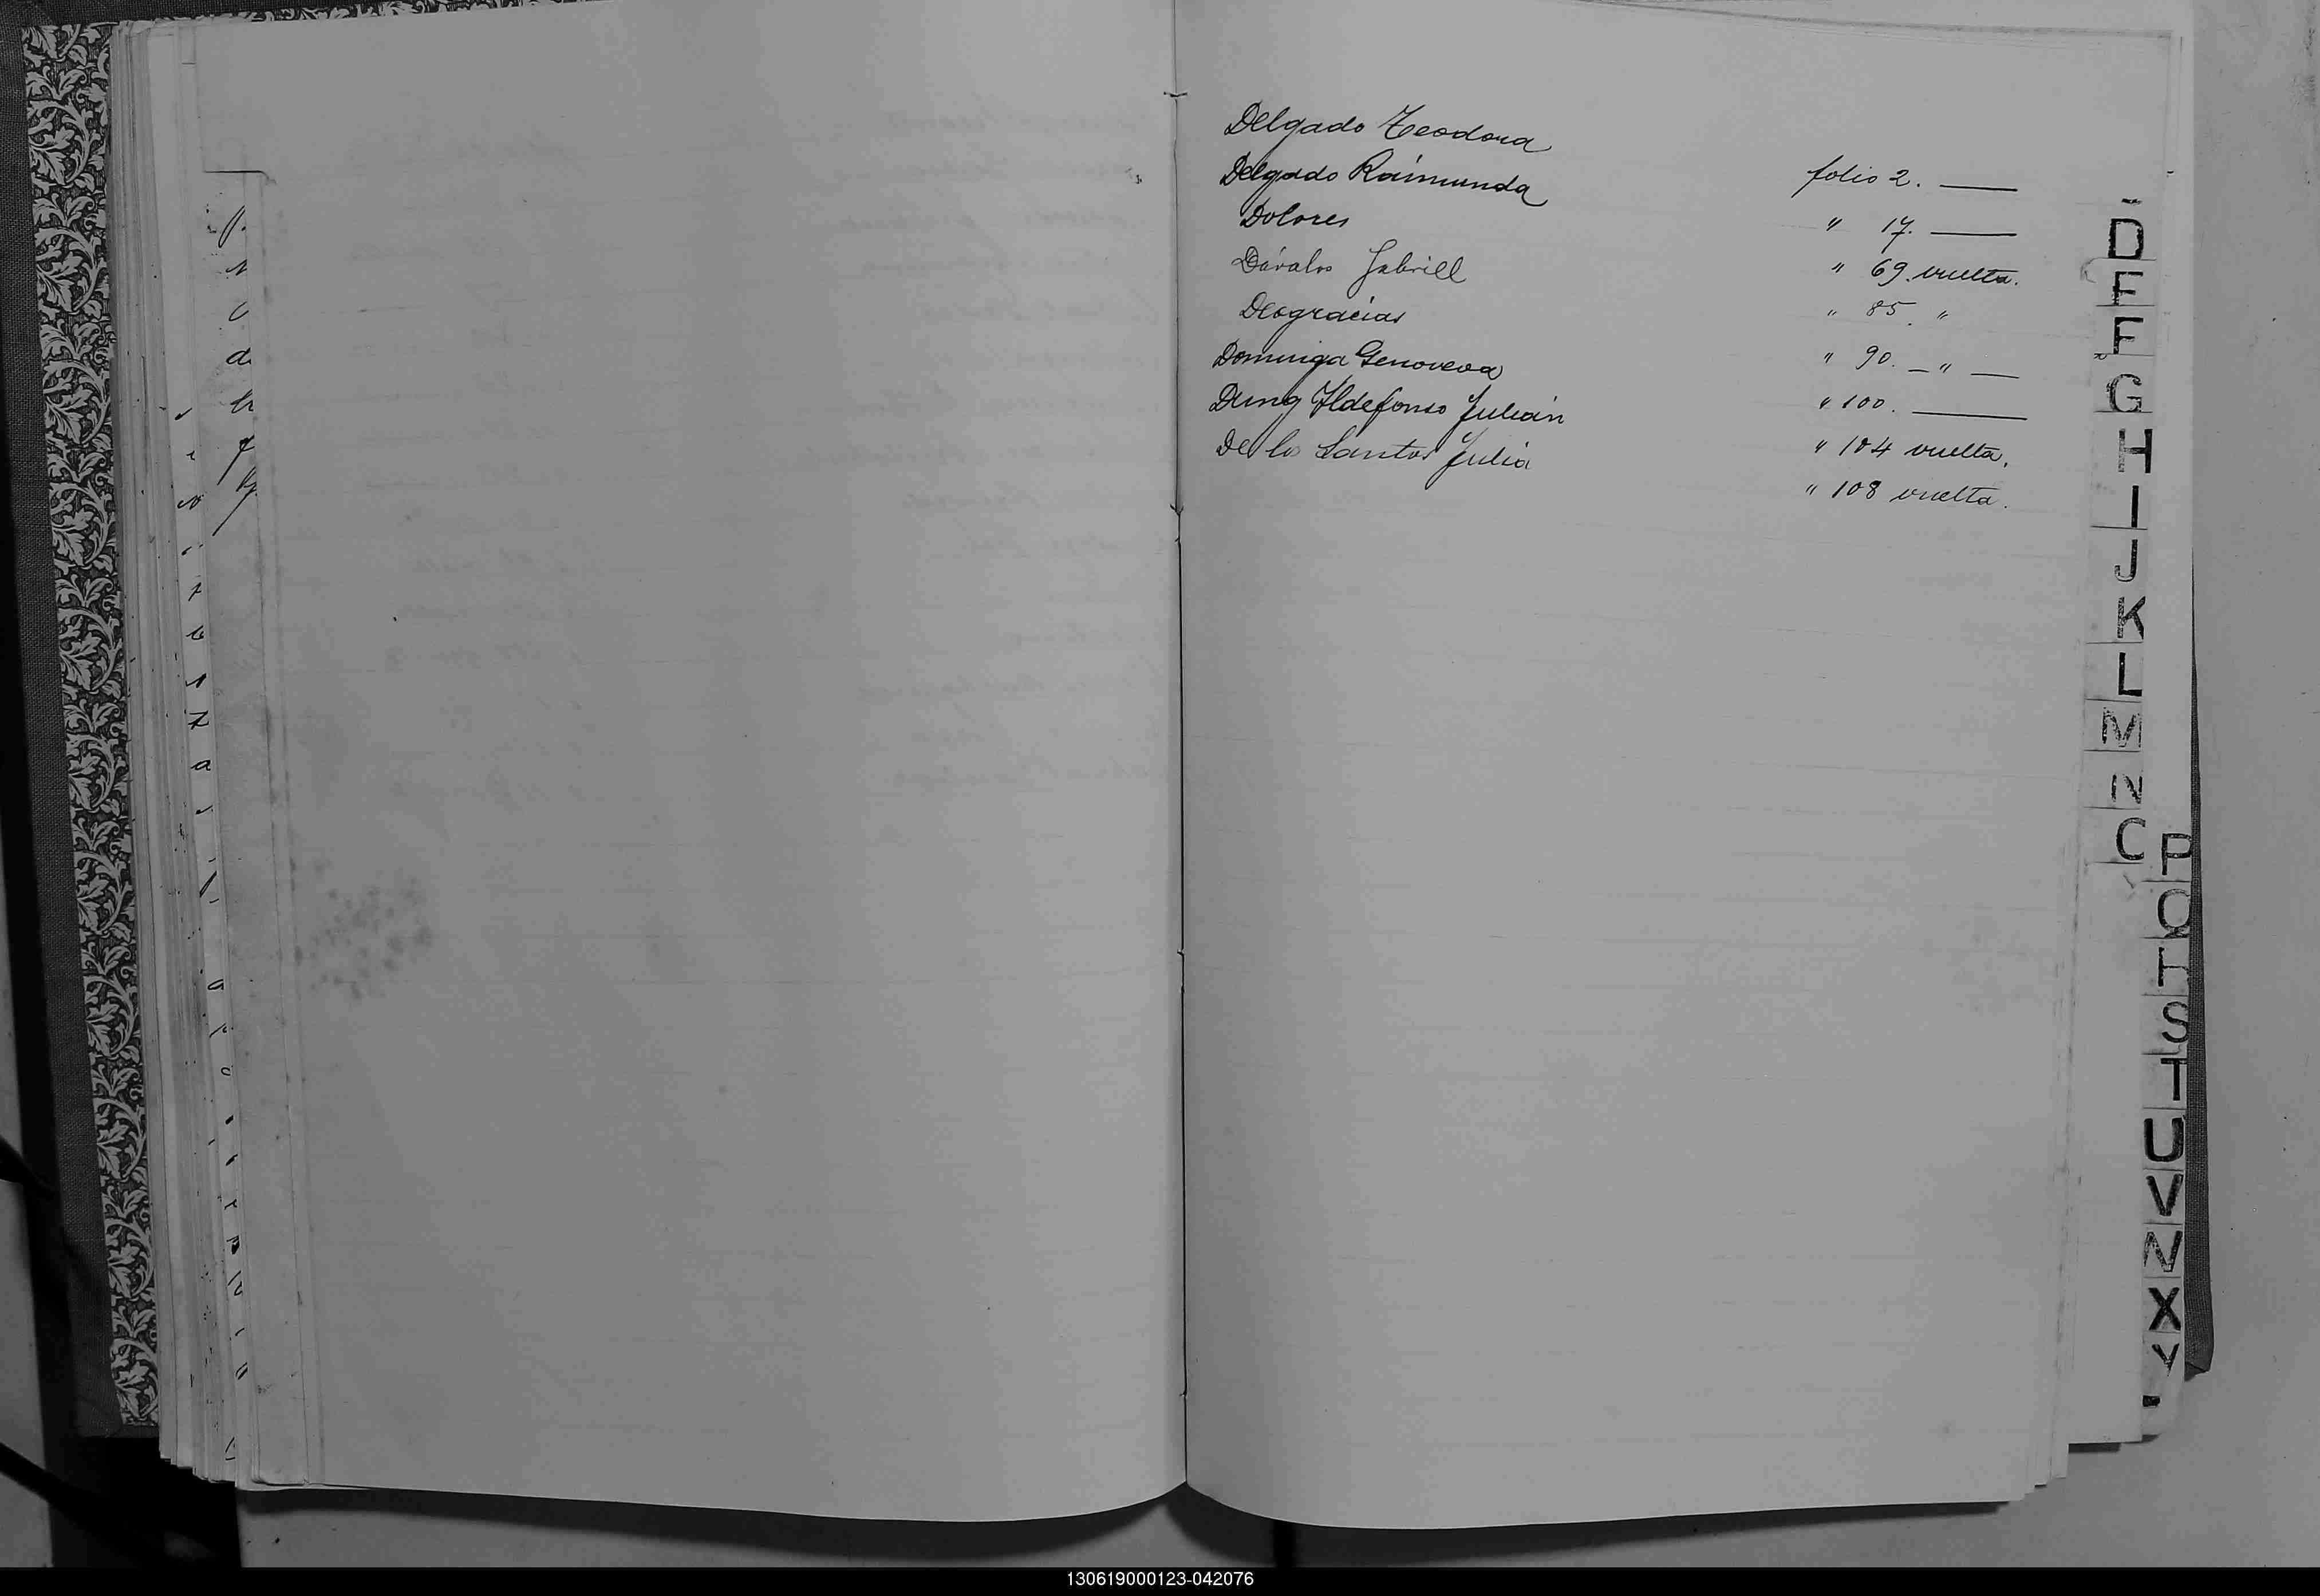 Delgado Teodora folio 2.
Delgado Raimunda " 17.
Dolores " 69. vuelta.
Dávalos Gabriell " 85. "
Deogracias " 90. — " —
Dominga Genoveva " 100.
Dung Ildefonso Julián " 104 vuelta.
De los Santos Julia " 108 vuelta.
D
E
F
G
H
I
J
K
L
M
N
O
P
Q
S
T
U
V
X
Y
130619000123-042076